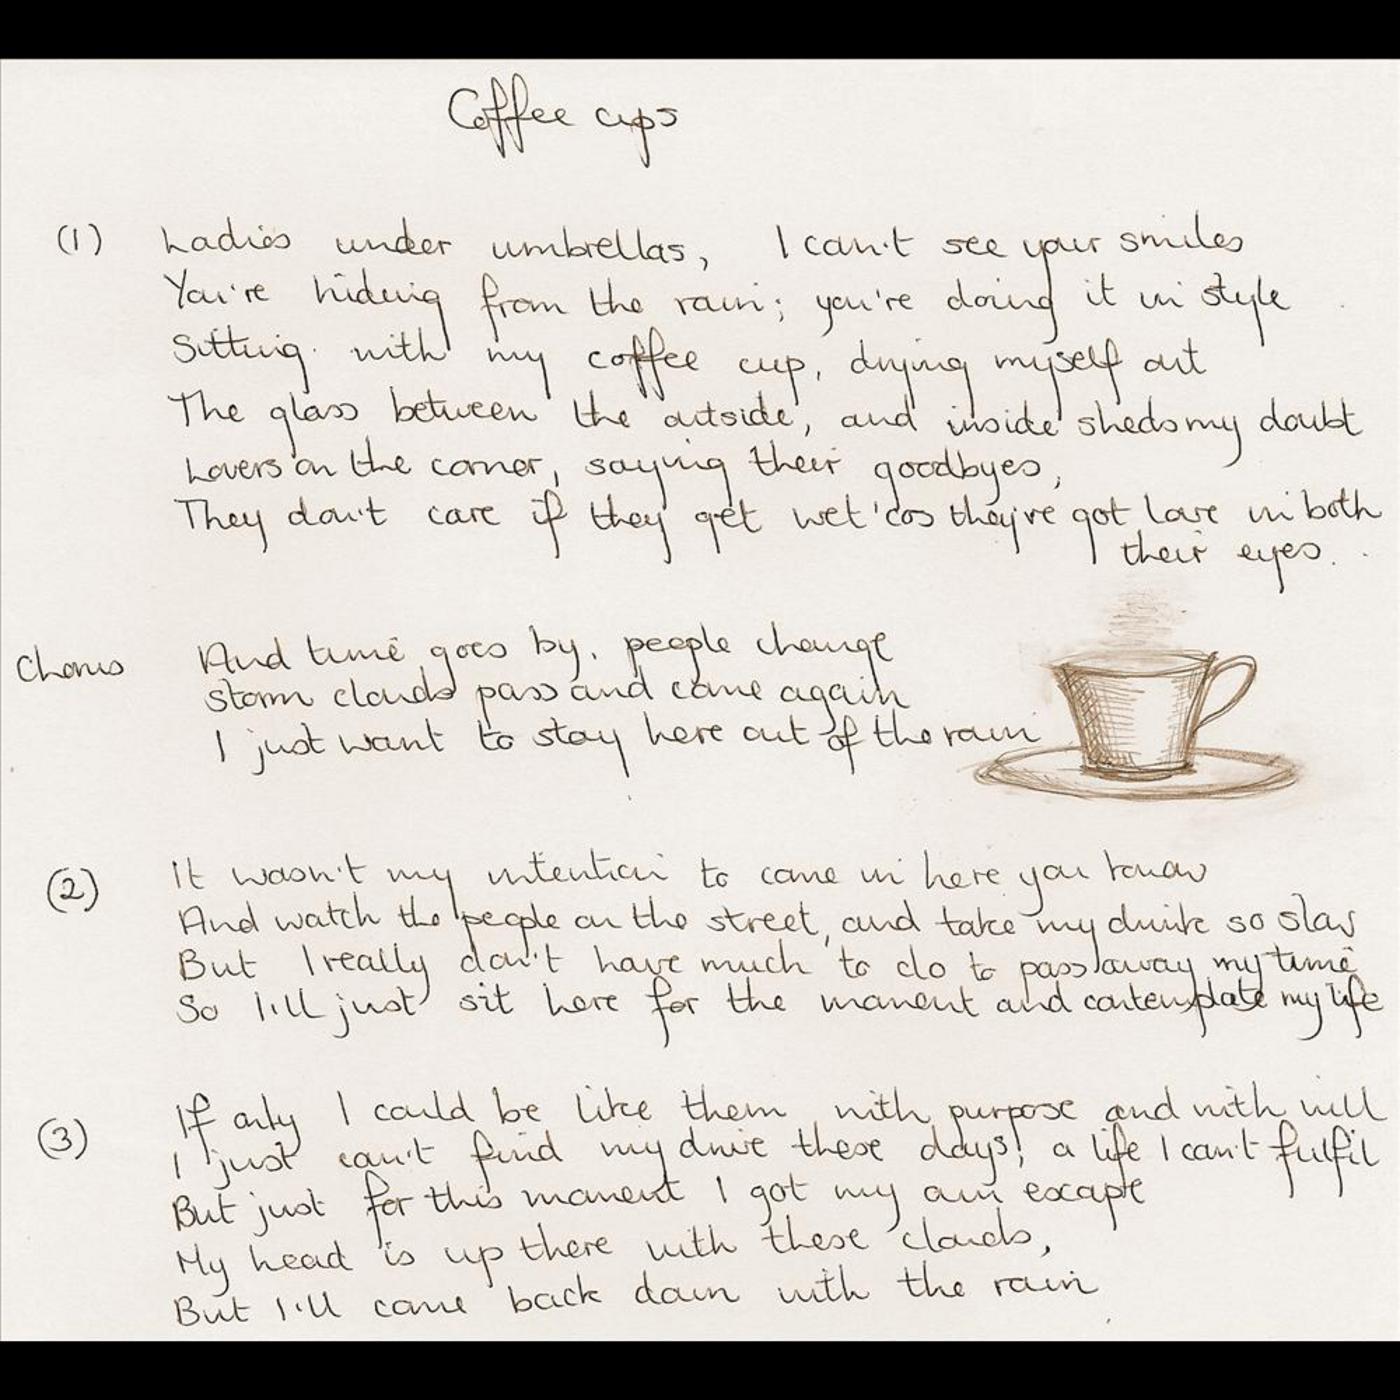 Coffee cups
(1) Ladies under umbrellas, I can't see your smiles
You're hiding from the rain; you're doing it in style
Sitting with my coffee cup, drying myself out
The glass between the outside, and inside sheds my doubt
Lovers on the corner, saying their goodbyes,
They don't care if they get wet 'cos they've got love in both
their eyes.
Chorus And time goes by, people change
storm clouds pass and come again
I just want to stay here out of the rain
(2) It wasn't my intention to come in here you know
And watch the people on the street, and take my drink so slow
But I really don't have much to do to pass away my time
So I'll just sit here for the moment and contemplate my life
(3) If only I could be like them with purpose and with will
I just can't find my drive these days; a life I can't fulfil
But just for this moment I got my own escape
My head is up there with these clouds,
But I'll come back down with the rain